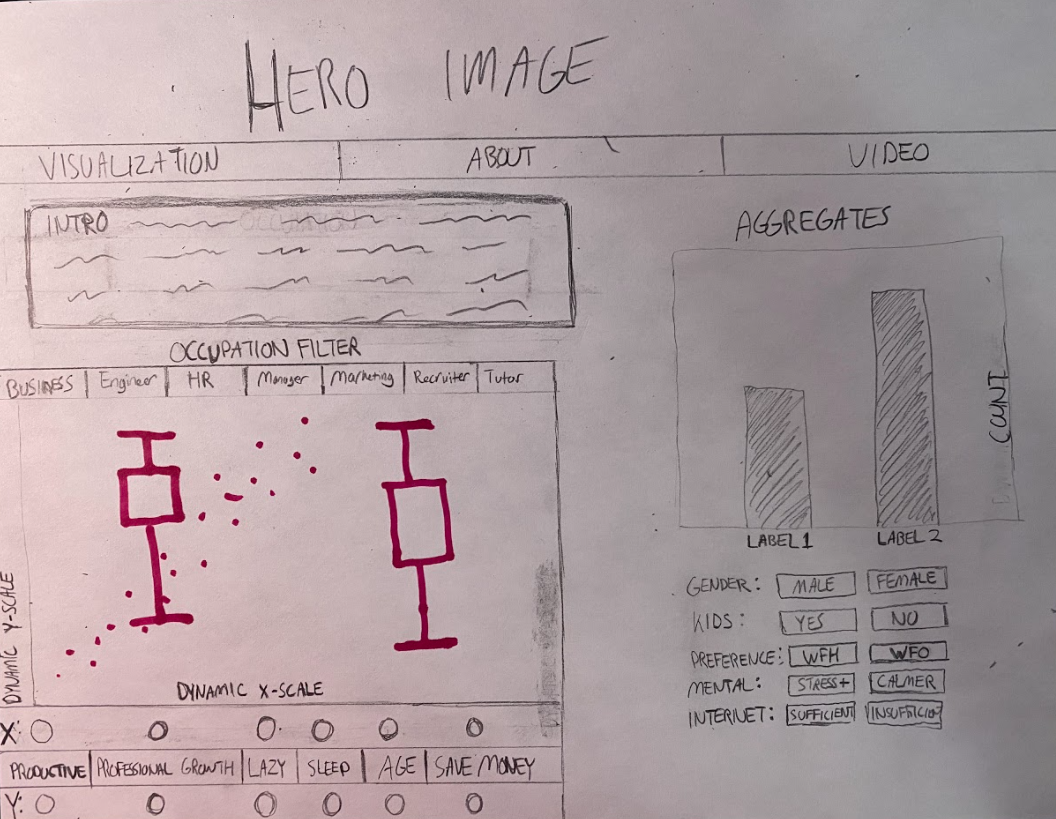 HERO IMAGE
VISUALIZATION ABOUT VIDEO
INTRO
OCCUPATION FILTER
BUSINESS Engineer HR Manager Marketing Recruiter Tutor
DYNAMIC Y-SCALE
DYNAMIC X-SCALE
X:
PRODUCTIVE PROFESSIONAL GROWTH LAZY SLEEP AGE SAVE MONEY
Y:
AGGREGATES
COUNT
LABEL 1 LABEL 2
GENDER: MALE FEMALE
KIDS: YES NO
PREFERENCE: WFH WFO
MENTAL: STRESS+ CALMER
INTERNET: SUFFICIENT